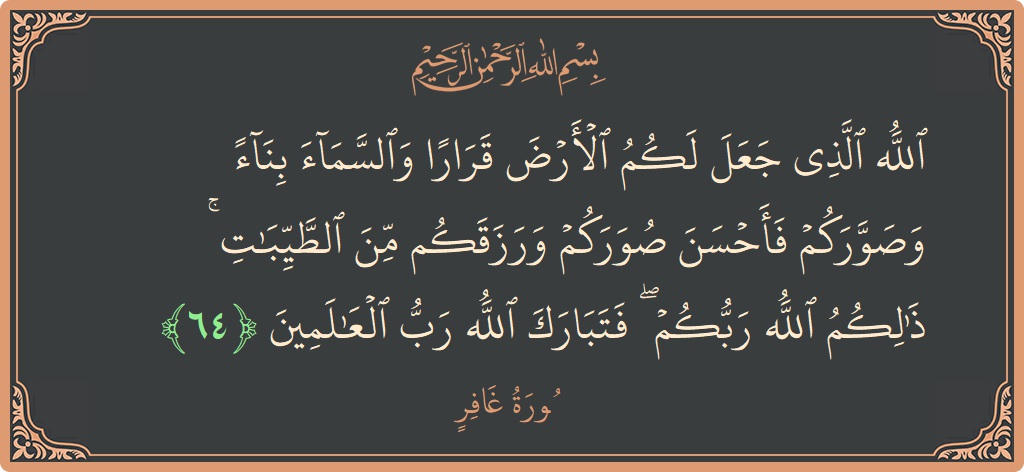 بِسْمِ اللهِ الرَّحْمٰنِ الرَّحِيْمِ
ٱللَّهُ ٱلَّذِى جَعَلَ لَكُمُ ٱلْأَرْضَ قَرَارًا وَٱلسَّمَآءَ بِنَآءً
وَصَوَّرَكُمْ فَأَحْسَنَ صُوَرَكُمْ وَرَزَقَكُم مِّنَ ٱلطَّيِّبَٰتِ ۚ
ذَٰلِكُمُ ٱللَّهُ رَبُّكُمْ ۖ فَتَبَارَكَ ٱللَّهُ رَبُّ ٱلْعَٰلَمِينَ ﴿٦٤﴾
سُورَةُ غَافِرٍ